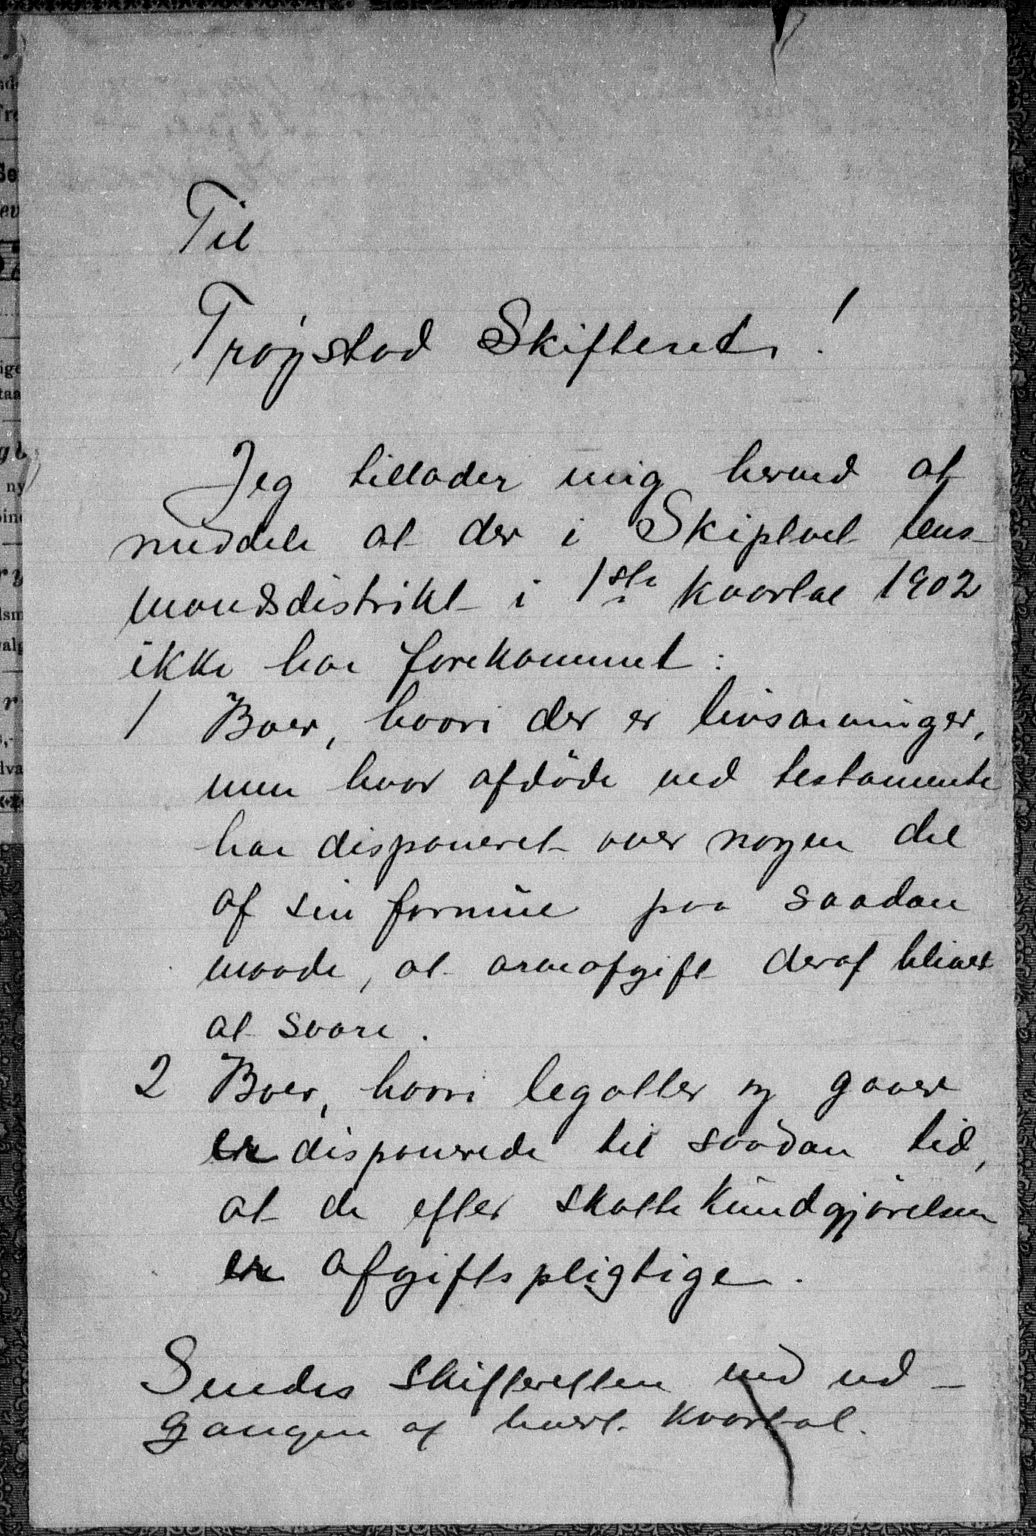 Til
Trøgstad Skifteret!
Jeg tillader mig herved at
meddele at der i Skiptvet lens-
mandsdistrikt i 1ste kvartal 1902
ikke har forekommet:
1 Boer, hvori der er livsarvinger,
men hvor afdöde ved testamente
har disponeret over nogen del
af sin formue paa saadan
maade, at arveafgift deraf bliver
at svare.
2 Boer, hvori legatter og gaver
er disponerede til saadan tid,
at de efter skattekundgjörelsen
er afgiftspligtige.
Sendes skifteretten ved ud-
gangen af hvert kvartal.